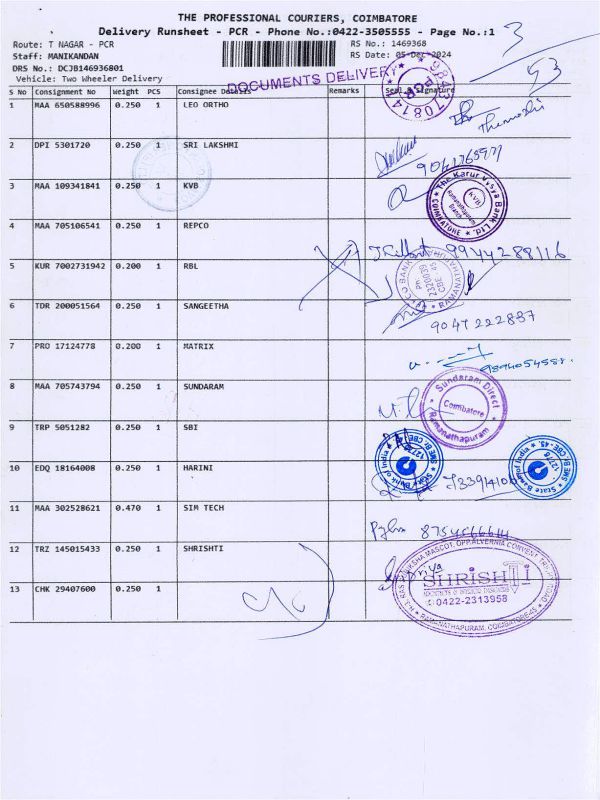 THE PROFESSIONAL COURIERS, COIMBATORE
Delivery Runsheet - PCR - Phone No.:0422-3505555 - Page No.:1
Route: T NAGAR - PCR
RS No.: 1469368
Staff: MANIKANDAN
RS Date: 05-Dec-2024
DRS No.: DCJB146936801
Vehicle: Two Wheeler Delivery
DOCUMENTS DELIVERY
3
53
S No Consignment No Weight PCS Consignee Details Remarks Seal & Signature
1 MAA 650588996 0.250 1 LEO ORTHO
2 DPI 5301720 0.250 1 SRI LAKSHMI
3 MAA 109341841 0.250 1 KVB
The Karur Vysya Bank Ltd.
KVB
Ramanathapuram
Branch
COIMBATORE
4 MAA 705106541 0.250 1 REPCO
9944288116
5 KUR 7002731942 0.200 1 RBL
6 TDR 200051564 0.250 1 SANGEETHA
9047222837
7 PRO 17124778 0.200 1 MATRIX
8 MAA 705743794 0.250 1 SUNDARAM
Sundaram Direct
Coimbatore
Ramanathapuram
9 TRP 5051282 0.250 1 SBI
State Bank of India
12776
SME Br. CBE-45
State Bank of India
12776
SME Br. CBE-45
10 EDQ 18164008 0.250 1 HARINI
11 MAA 302528621 0.470 1 SIM TECH
12 TRZ 145015433 0.250 1 SHRISHTI
SHRISHTI
0422-2313958
RAMANATHAPURAM, COIMBATORE-45
13 CHK 29407600 0.250 1